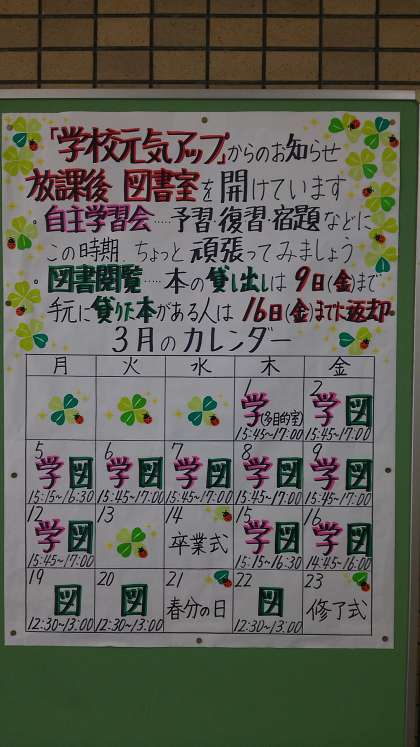 「学校元気アップ」からのお知らせ
放課後 図書室を開けています
・自主学習会……予習・復習・宿題などに
この時期、ちょっと頑張ってみましょう
・図書閲覧……本の貸し出しは9日(金)まで
手元に借りた本がある人は16日(金)までに返却
3月のカレンダー
月 火 水 木 金
1 2
学(多目的室) 学図
15:45~17:00 15:45~17:00
5 6 7 8 9
学図 学図 学図 学図 学図
15:15~16:30 15:45~17:00 15:45~17:00 15:45~17:00 15:45~17:00
12 13 14 15 16
学図 卒業式 学図 学図
15:45~17:00 15:15~16:30 14:45~16:00
19 20 21 22 23
図 図 春分の日 図 修了式
12:30~13:00 12:30~13:00 12:30~13:00